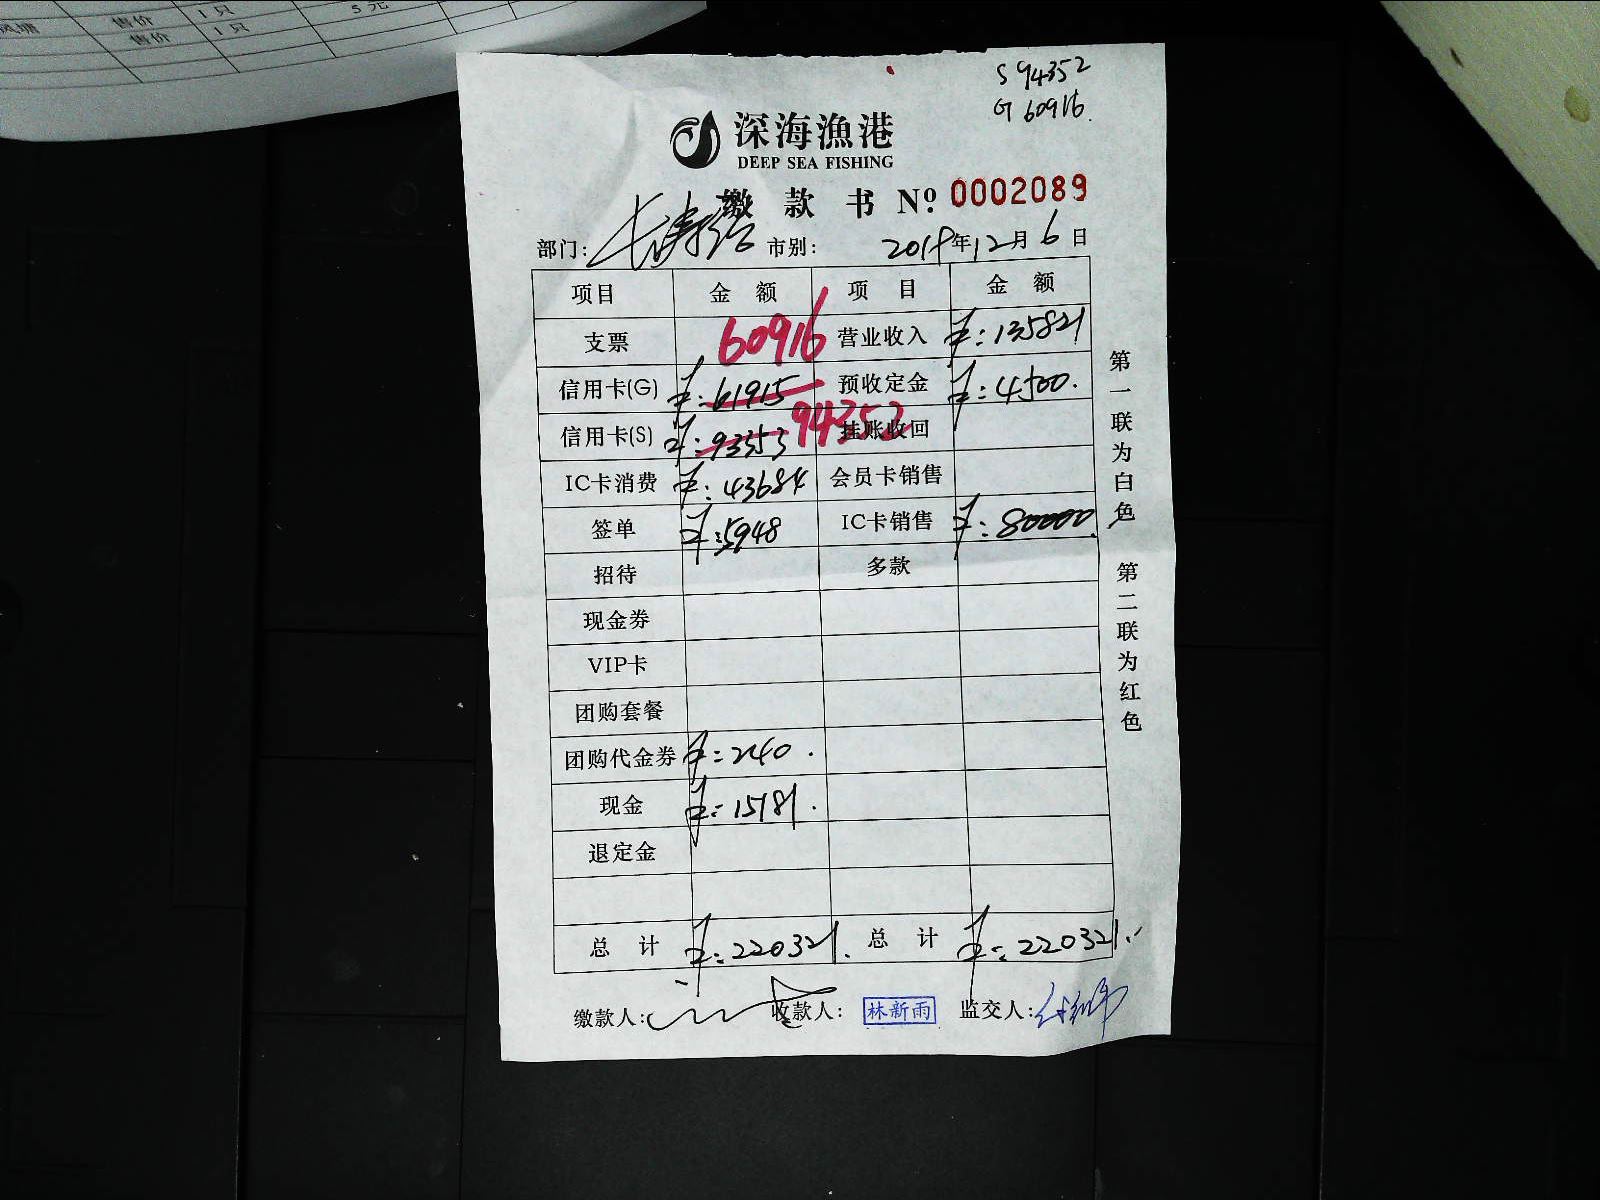 售价 1只 5元
售价 1只
S 94352
G 60916.
深海漁港
DEEP SEA FISHING
缴款书 Nº: 0002089
部门: 市别: 2018年12月6日
项目 金额 项目 金额
支票 60916 营业收入 ¥:135821
信用卡(G) ¥:61915 预收定金 ¥:4500.
信用卡(S) ¥:93353 94352 挂账收回
IC卡消费 ¥:43684 会员卡销售
签单 ¥:5948 IC卡销售 ¥:80000.
招待 多款
现金券
VIP卡
团购套餐
团购代金券 ¥:240.
现金 ¥:15181.
退定金
总计 ¥:220321. 总计 ¥:220321.
缴款人: 收款人: 林新雨 监交人:
第一联为白色 第二联为红色